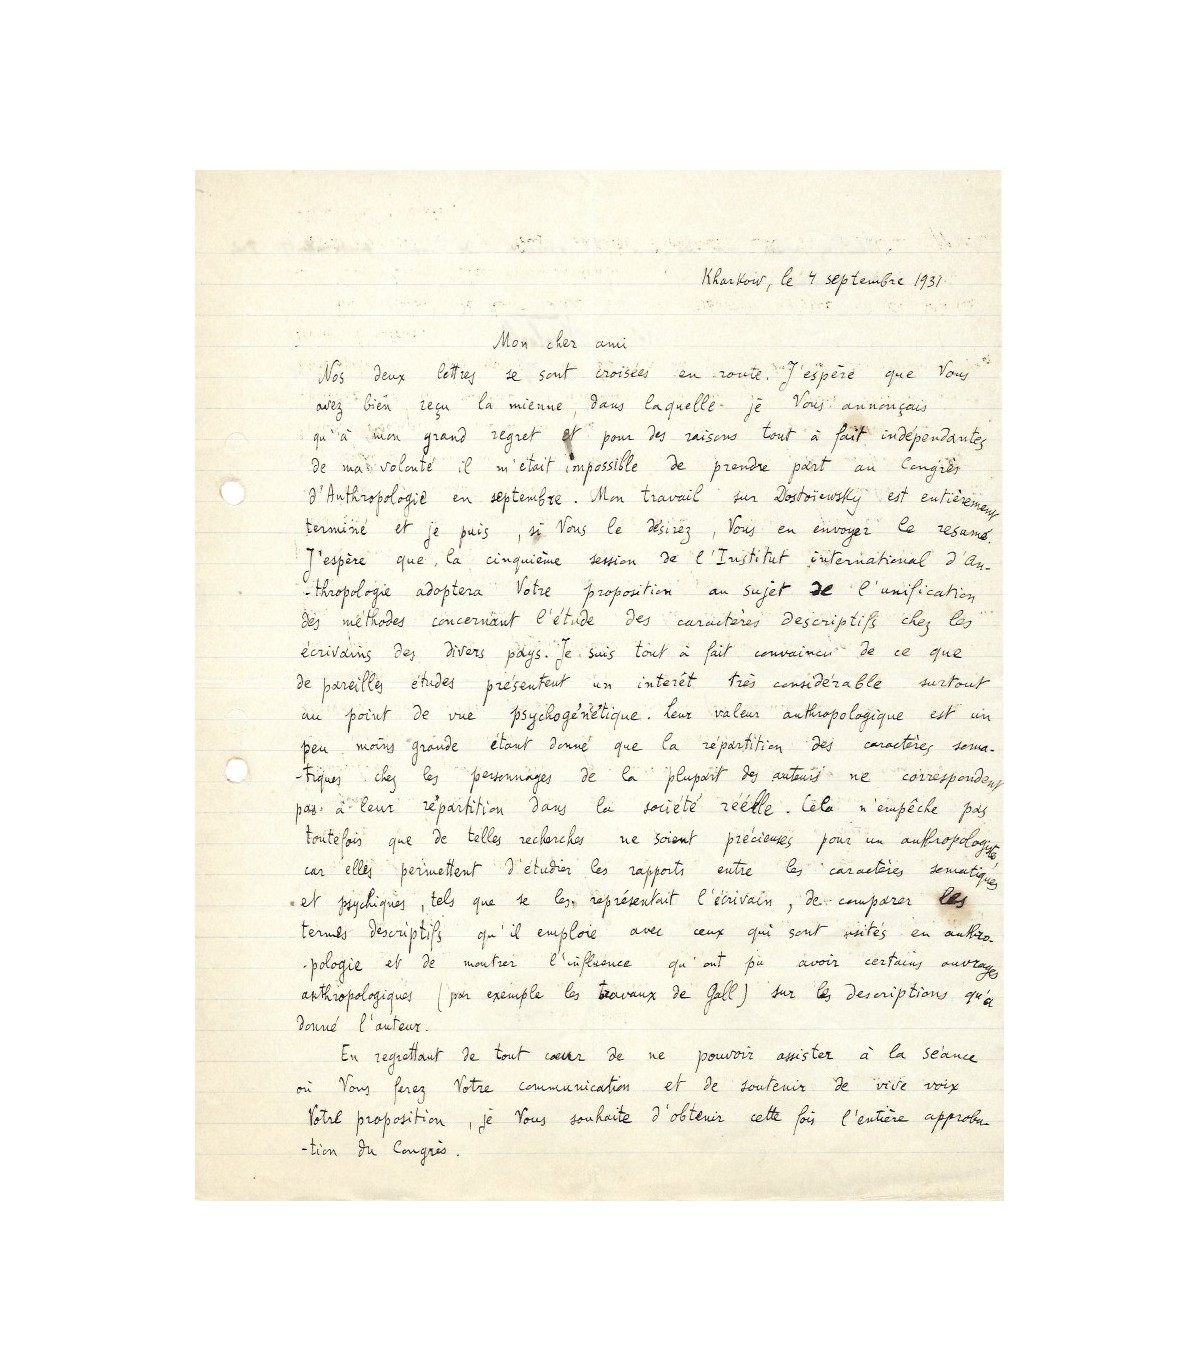 Kharkow, le 4 septembre 1931
Mon cher ami
Nos deux lettres se sont croisées en route. J'espère que Vous
avez bien reçu la mienne, dans laquelle je Vous annonçais
qu'à mon grand regret et pour des raisons tout à fait indépendantes
de ma volonté il m'était impossible de prendre part au Congrès
d'Anthropologie en septembre. Mon travail sur Dostoïewsky est entièrement
terminé et je puis, si Vous le désirez, Vous en envoyer le resumé.
J'espère que la cinquième session de l'Institut international d'An-
-thropologie adoptera Votre proposition au sujet de l'unification
des méthodes concernant l'étude des caractères descriptifs chez les
écrivains des divers pays. Je suis tout à fait convaincu de ce que
de pareilles études présentent un interêt très considérable surtout
au point de vue psychogénétique. Leur valeur anthropologique est un
peu moins grande étant donné que la répartition des caractères soma-
-tiques chez les personnages de la plupart des auteurs ne correspondent
pas à leur répartition dans la société réélle. Cela n'empêche pas
toutefois que de telles recherches ne soient précieuses pour un anthropologiste
car elles permettent d'étudier les rapports entre les caractères somatiques
et psychiques, tels que se les représentait l'écrivain, de comparer les
termes descriptifs qu'il emploie avec ceux qui sont usités en anthro-
-pologie et de montrer l'influence qu'ont pu avoir certains ouvrages
anthropologiques (par exemple les travaux de Gall) sur les descriptions qu'a
donné l'auteur.
En regrettant de tout cœur de ne pouvoir assister à la séance
où Vous ferez Votre communication et de soutenir de vive voix
Votre proposition, je Vous souhaite d'obtenir cette fois l'entière approba-
-tion du Congrès.